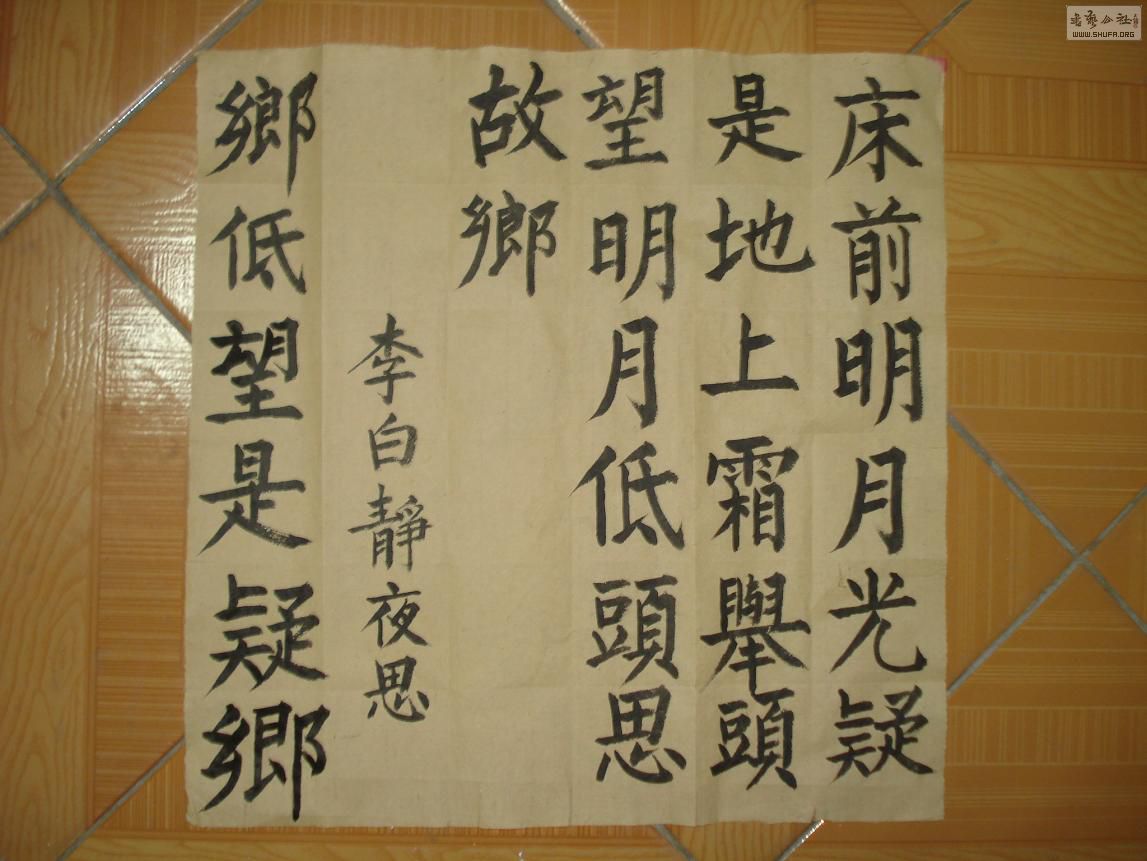 床前明月光疑
是地上霜舉頭
望明月低頭思
故鄉
李白靜夜思
鄉低望是疑鄉
書藝公社
WWW.SHUFA.ORG